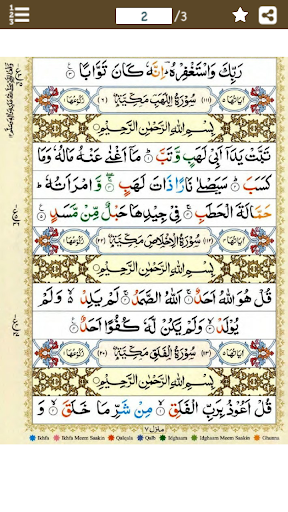 2 /3
رَبِّكَ وَاسْتَغْفِرْهُ ۚ اِنَّهٗ كَانَ تَوَّابًا
اٰيَاتُهَا ٥ (١١١) سُوْرَةُ اللَّهَبِ مَكِّيَّةٌ (٦) رُكُوْعُهَا ١
بِسْمِ اللهِ الرَّحْمٰنِ الرَّحِيْمِ
تَبَّتْ يَدَاۤ اَبِيْ لَهَبٍ وَّتَبَّ مَاۤ اَغْنٰى عَنْهُ مَالُهٗ وَمَا
كَسَبَ سَيَصْلٰى نَارًا ذَاتَ لَهَبٍ وَّ امْرَاَتُهٗ
حَمَّالَةَ الْحَطَبِ فِيْ جِيْدِهَا حَبْلٌ مِّنْ مَّسَدٍ
اٰيَاتُهَا ٤ (١١٢) سُوْرَةُ الْاِخْلَاصِ مَكِّيَّةٌ (٢٢) رُكُوْعُهَا ١
بِسْمِ اللهِ الرَّحْمٰنِ الرَّحِيْمِ
قُلْ هُوَ اللهُ اَحَدٌ اَللهُ الصَّمَدُ لَمْ يَلِدْ وَلَمْ
يُوْلَدْ وَلَمْ يَكُنْ لَّهٗ كُفُوًا اَحَدٌ
اٰيَاتُهَا ٥ (١١٣) سُوْرَةُ الْفَلَقِ مَكِّيَّةٌ (٢٠) رُكُوْعُهَا ١
بِسْمِ اللهِ الرَّحْمٰنِ الرَّحِيْمِ
قُلْ اَعُوْذُ بِرَبِّ الْفَلَقِ مِنْ شَرِّ مَا خَلَقَ وَ
منزل ٧
Ikhfa Ikhfa Meem Saakin Qalqala Qalb Idghaam Idghaam Meem Saakin Ghunna